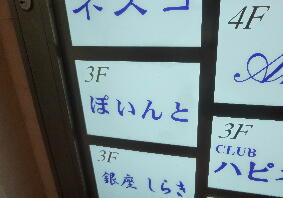 ネスコ
4F
3F
ぽいんと
3F
CLUB
ハピ
3F
銀座 しらき